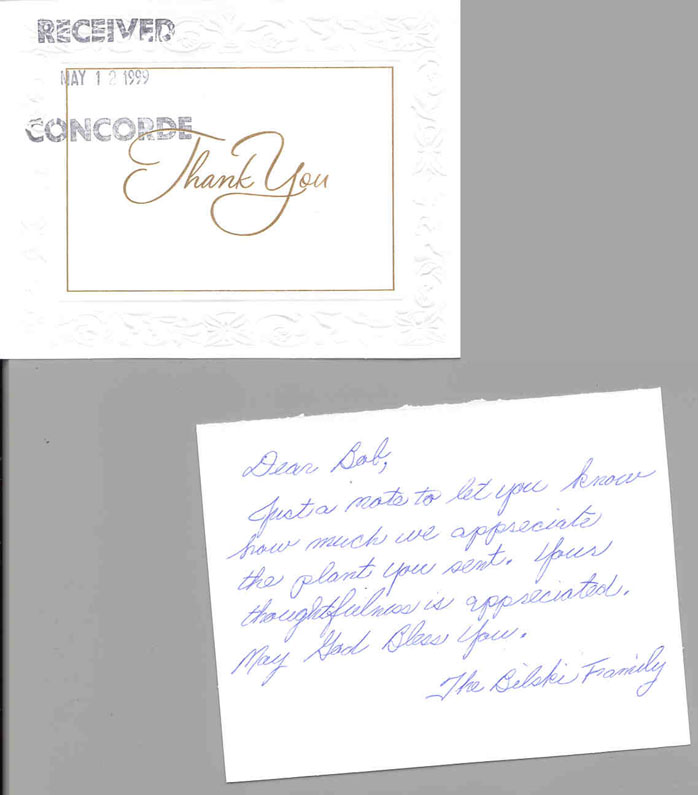 RECEIVED
MAY 12 1999
CONCORDE
Thank You
Dear Bob,
Just a note to let you know
how much we appreciate
the plant you sent. Yours
thoughtfulness is appreciated.
May God Bless You.
The Bilski Family